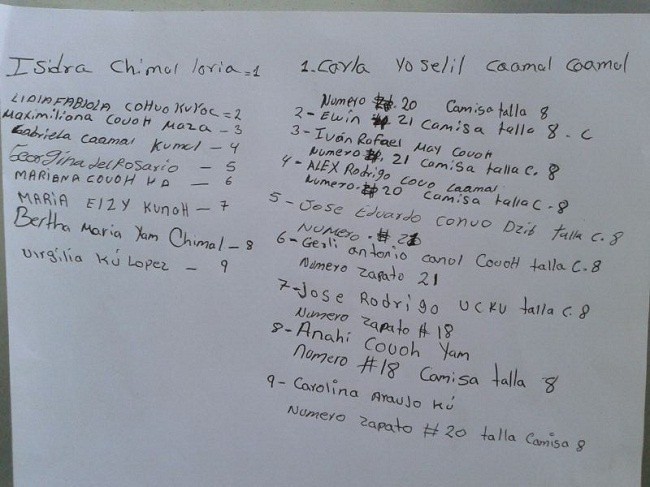 Isidra Chimal loria = 1
LIDIA FABIOLA COHUO KUYOC = 2
Maximiliana COUOH Maza - 3
Gabriela caamal Kumul - 4
Georgina del Rosario - 5
MARIANA COUOH HA - 6
MARIA ElZY KUNOH - 7
Bertha Maria Yam Chimal - 8
Virgilia KÚ LOPEZ - 9
1. Carla Yoselil Caamal Caamal
Numero #. 20 Camisa talla 8
2 - Elvin #. 21 Camisa talla 8. C
3 - Iván Rafael MAY COUOH
Numero #. 21 camisa talla C. 8
4 - ALEX Rodrigo Caamal
Numero. # 20 camisa talla C. 8
5 - Jose Eduardo conuo Dzib talla C. 8
NUMERO. # 21
6 - Gerli antonio canul COUOH talla C. 8
Numero zapato 21
7 - Jose Rodrigo UCKU talla C. 8
Numero zapato # 18
8 - Anahi COUOH Yam
numero #18 Camisa talla 8
9 - Carolina Araujo KÚ
Numero zapato # 20 talla Camisa 8